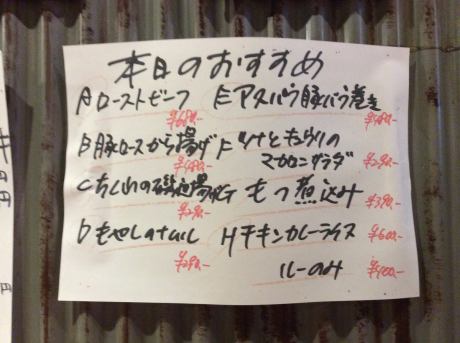 本日のおすすめ
Aローストビーフ
¥680.-
B豚ロースから揚げ
¥480.-
Cちくわの磯辺揚げ
¥290.-
Dもやしのナムル
¥290.-
Eアスパラ豚バラ巻き
¥480.-
Fツナときゅうりの
マカロニサラダ
¥290.-
G もつ煮込み
¥390.-
Hチキンカレーライス
¥600.-
ルーのみ
¥400.-
円
円
円